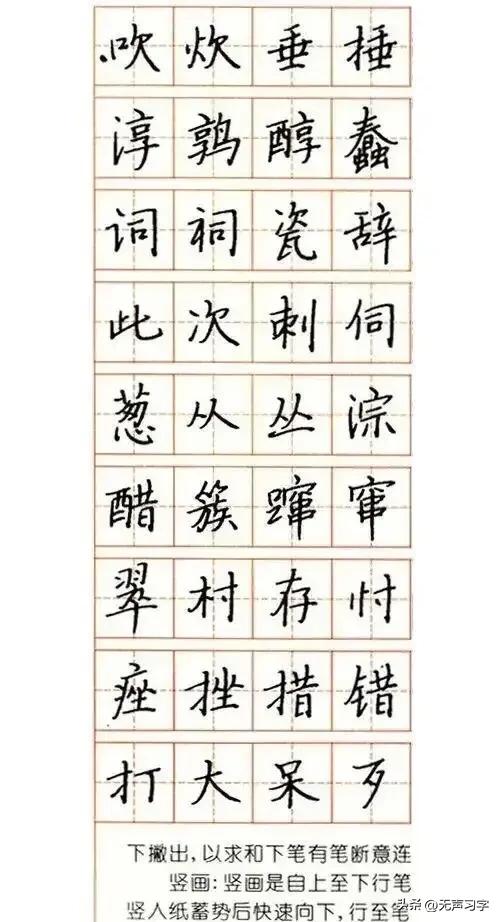 吹炊垂捶
淳鹑醇蠢
词祠瓷辞
此次刺伺
葱从丛淙
醋簇蹿窜
翠村存忖
痤挫措错
打大呆歹
下撇出，以求和下笔有笔断意连
竖画：竖画是自上至下行笔
竖入纸蓄势后快速向下，行至笔
头条@无声习字